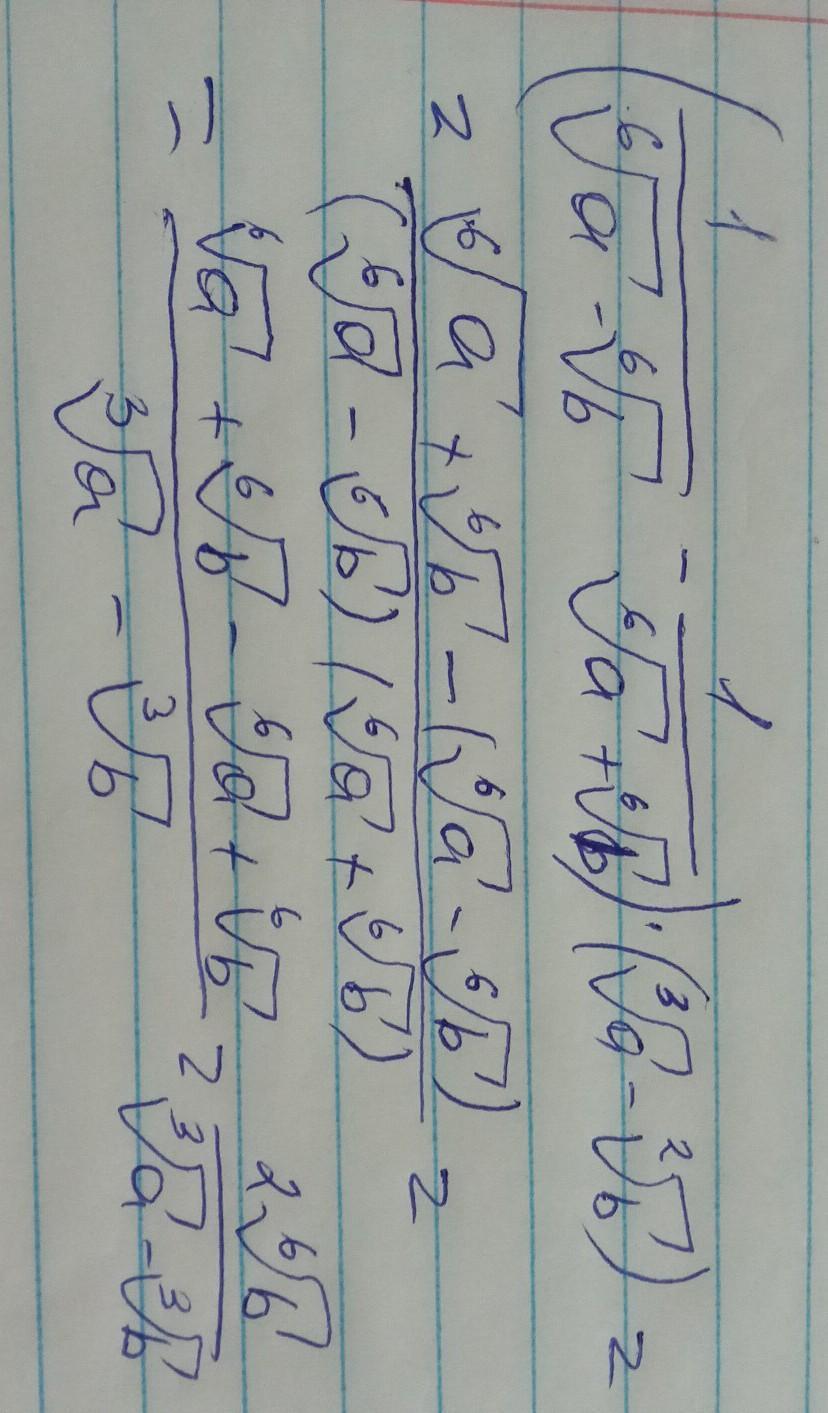 (1/(⁶√a - ⁶√b) - 1/(⁶√a + ⁶√b)) · (³√a - ²√b) =
= (⁶√a + ⁶√b - (⁶√a - ⁶√b))/((⁶√a - ⁶√b)(⁶√a + ⁶√b)) =
= (⁶√a + ⁶√b - ⁶√a + ⁶√b)/(³√a - ³√b) = 2⁶√b/(³√a - ³√b)